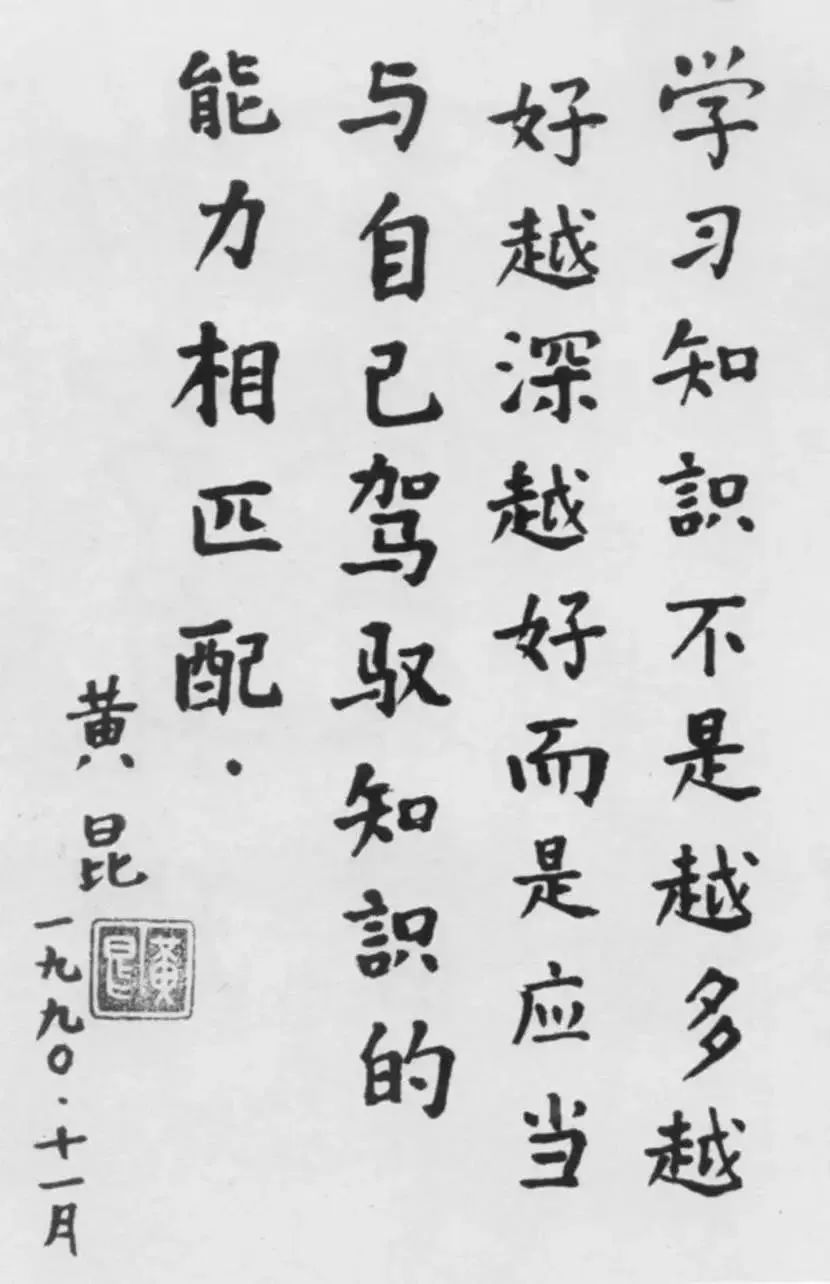 学习知識不是越多越
好越深越好而是应当
与自己驾驭知識的
能力相匹配.
黄昆
一九九〇.十一月
黄昆